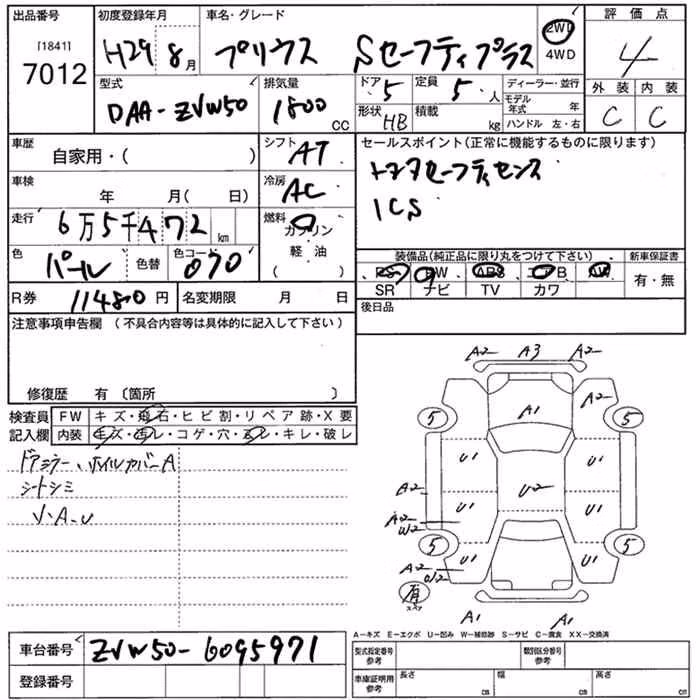 出品番号 初度登録年月 車名・グレード 2WD 評価点
[1841] 7012 H29 8月 プリウス Sセーフティプラス 4WD 4
型式 排気量 ドア 5 定員 5人 ディーラー・並行 外装 内装
DAA-ZVW50 1800 CC 形状 HB 積載 kg モデル年式 年 C C
ハンドル 左・右
車歴 自家用・( ) シフト AT セールスポイント(正常に機能するものに限ります)
車検 年 月( 日) 冷房 AC トヨタセーフティセンス
走行 6万5千472km 燃料 ガソリン・軽・油 ICS
色 パール 色替 色コード 070 ( ) 装備品(純正品に限り丸をつけて下さい) 新車保証書
PS PW ABS エアB AW 有・無
SR ナビ TV カワ
R券 11480円 名変期限 月 日 後日品
注意事項申告欄 (不具合内容等は具体的に記入して下さい)
修復歴 有 〔箇所 〕
検査員 FW キズ・飛石・ヒビ割・リペア跡・X要
記入欄 内装 キズ・汚レ・コゲ・穴・スレ・キレ・破レ
ドアミラー、ホイルカバーA
シートシミ
V・A・U
A2 A3 A2
A2
5 A1 5
U1 U1
A2 U1 U2 U1
A2
W2
5 U1 U1 5
A2 W2
有 スペア
A1 A1
A−キズ E−エクボ U−凹み W−補修跡 S−サビ C−腐食 XX−交換済
車台番号 ZVW50-6095971
型式指定番号 参考 類別区分番号 参考
車庫証明用 参考 長さ cm 幅 cm 高さ cm